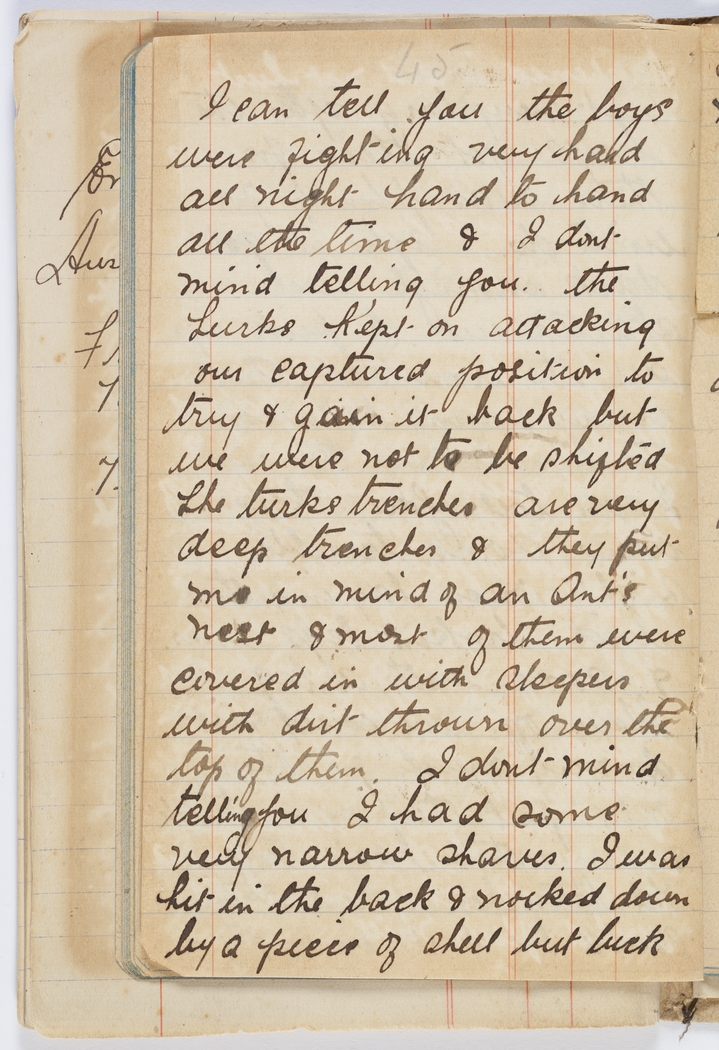 45
I can tell you the boys
were fighting very hard
all night hand to hand
all the time & I dont
mind telling you. the
Turks Kept on attacking
our captured position to
try & gain it back but
we were not to be shifted
The turks trenches are very
deep trenches & they put
me in mind of an Ant's
nest & most of them were
covered in with sleepers
with dirt thrown over the
top of them. I dont mind
telling you I had some
very narrow shaves. I was
hit in the back & nocked down
by a piece of shell but luck